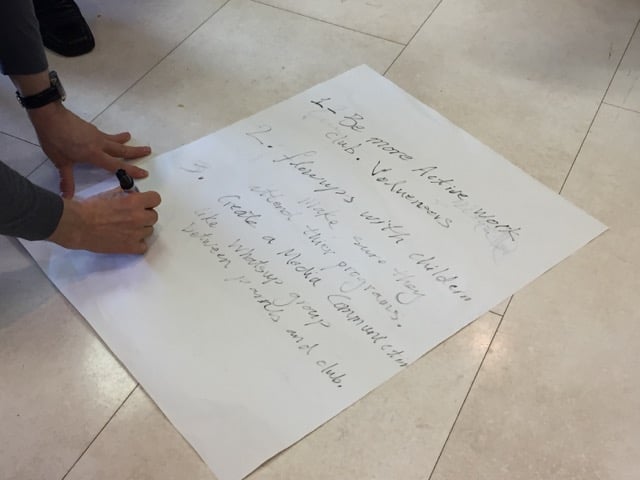 1- Be more Active, work
club. Volunteers
2. flowups with childern
Make sure they
attend their programs.
3. Create a Media Communication
like Whatsup group
between Parents and club.